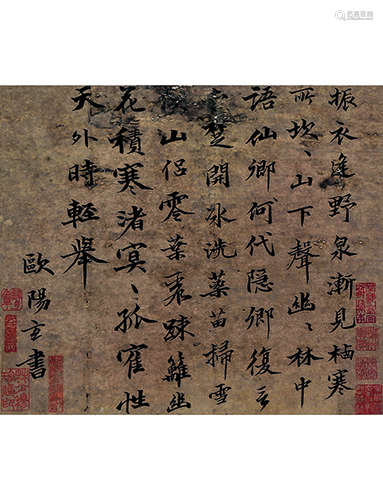 振衣逢野泉漸見栖寒
所坎〻山下聲幽〻林中
語仙鄉何代隱鄉復言
楚開冰洗藥苗掃雪
候山侶零葉衰疎籬幽
花積寒渚冥〻孤寉性
天外時輕舉
歐陽玄書